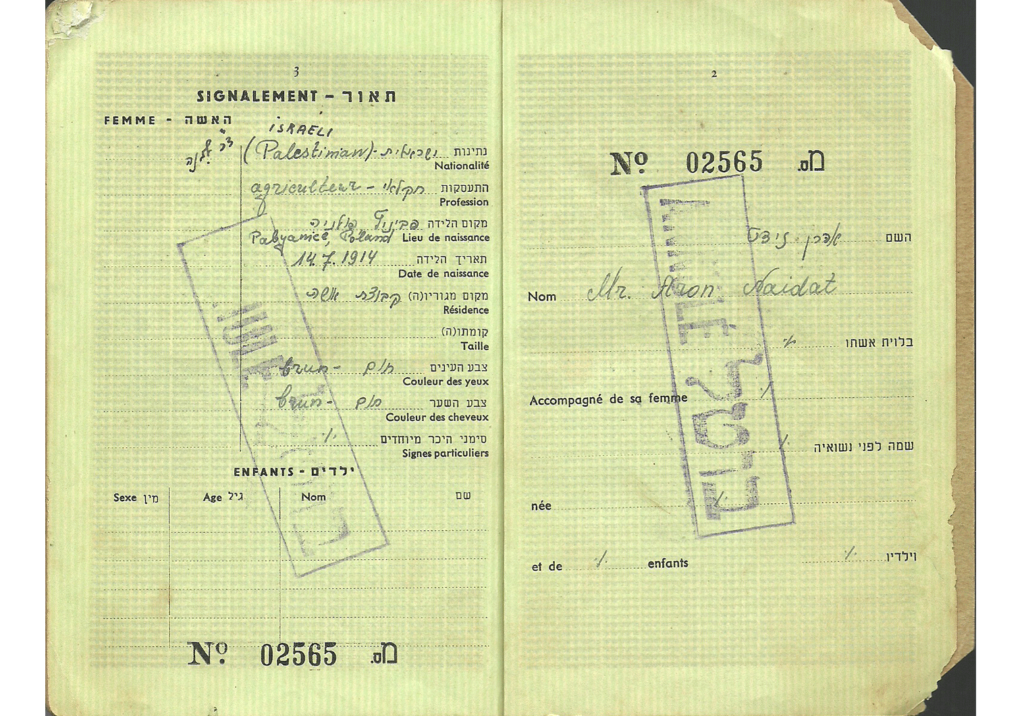 2
Nº 02565 מס.
השם אהרן
Nom Mr. Aron Naidat
בלוית אשתו ٪
Accompagné de sa femme ٪
שמה לפני נשואיה ٪
née ٪
וילדיו ٪
et de ٪ enfants
ANNULÉ בוטל
3
SIGNALEMENT – תאור
FEMME - האשה
ISRAELI
נתינות ישראלית - (Palestinian)
Nationalité
התעסקות חקלאי - agriculteur
Profession
מקום הלידה פולניה
Pabyanice, Poland Lieu de naissance
תאריך הלידה 14.7.1914
Date de naissance
מקום מגוריו(ה) קבוצת
Résidence
קומתו(ה)
Taille
צבע העינים חום - brun
Couleur des yeux
צבע השער חום - brun
Couleur des cheveux
סימני היכר מיוחדים ٪
Signes particuliers
ENFANTS - ילדים
Sexe מין Age גיל Nom שם
Nº 02565 מס.